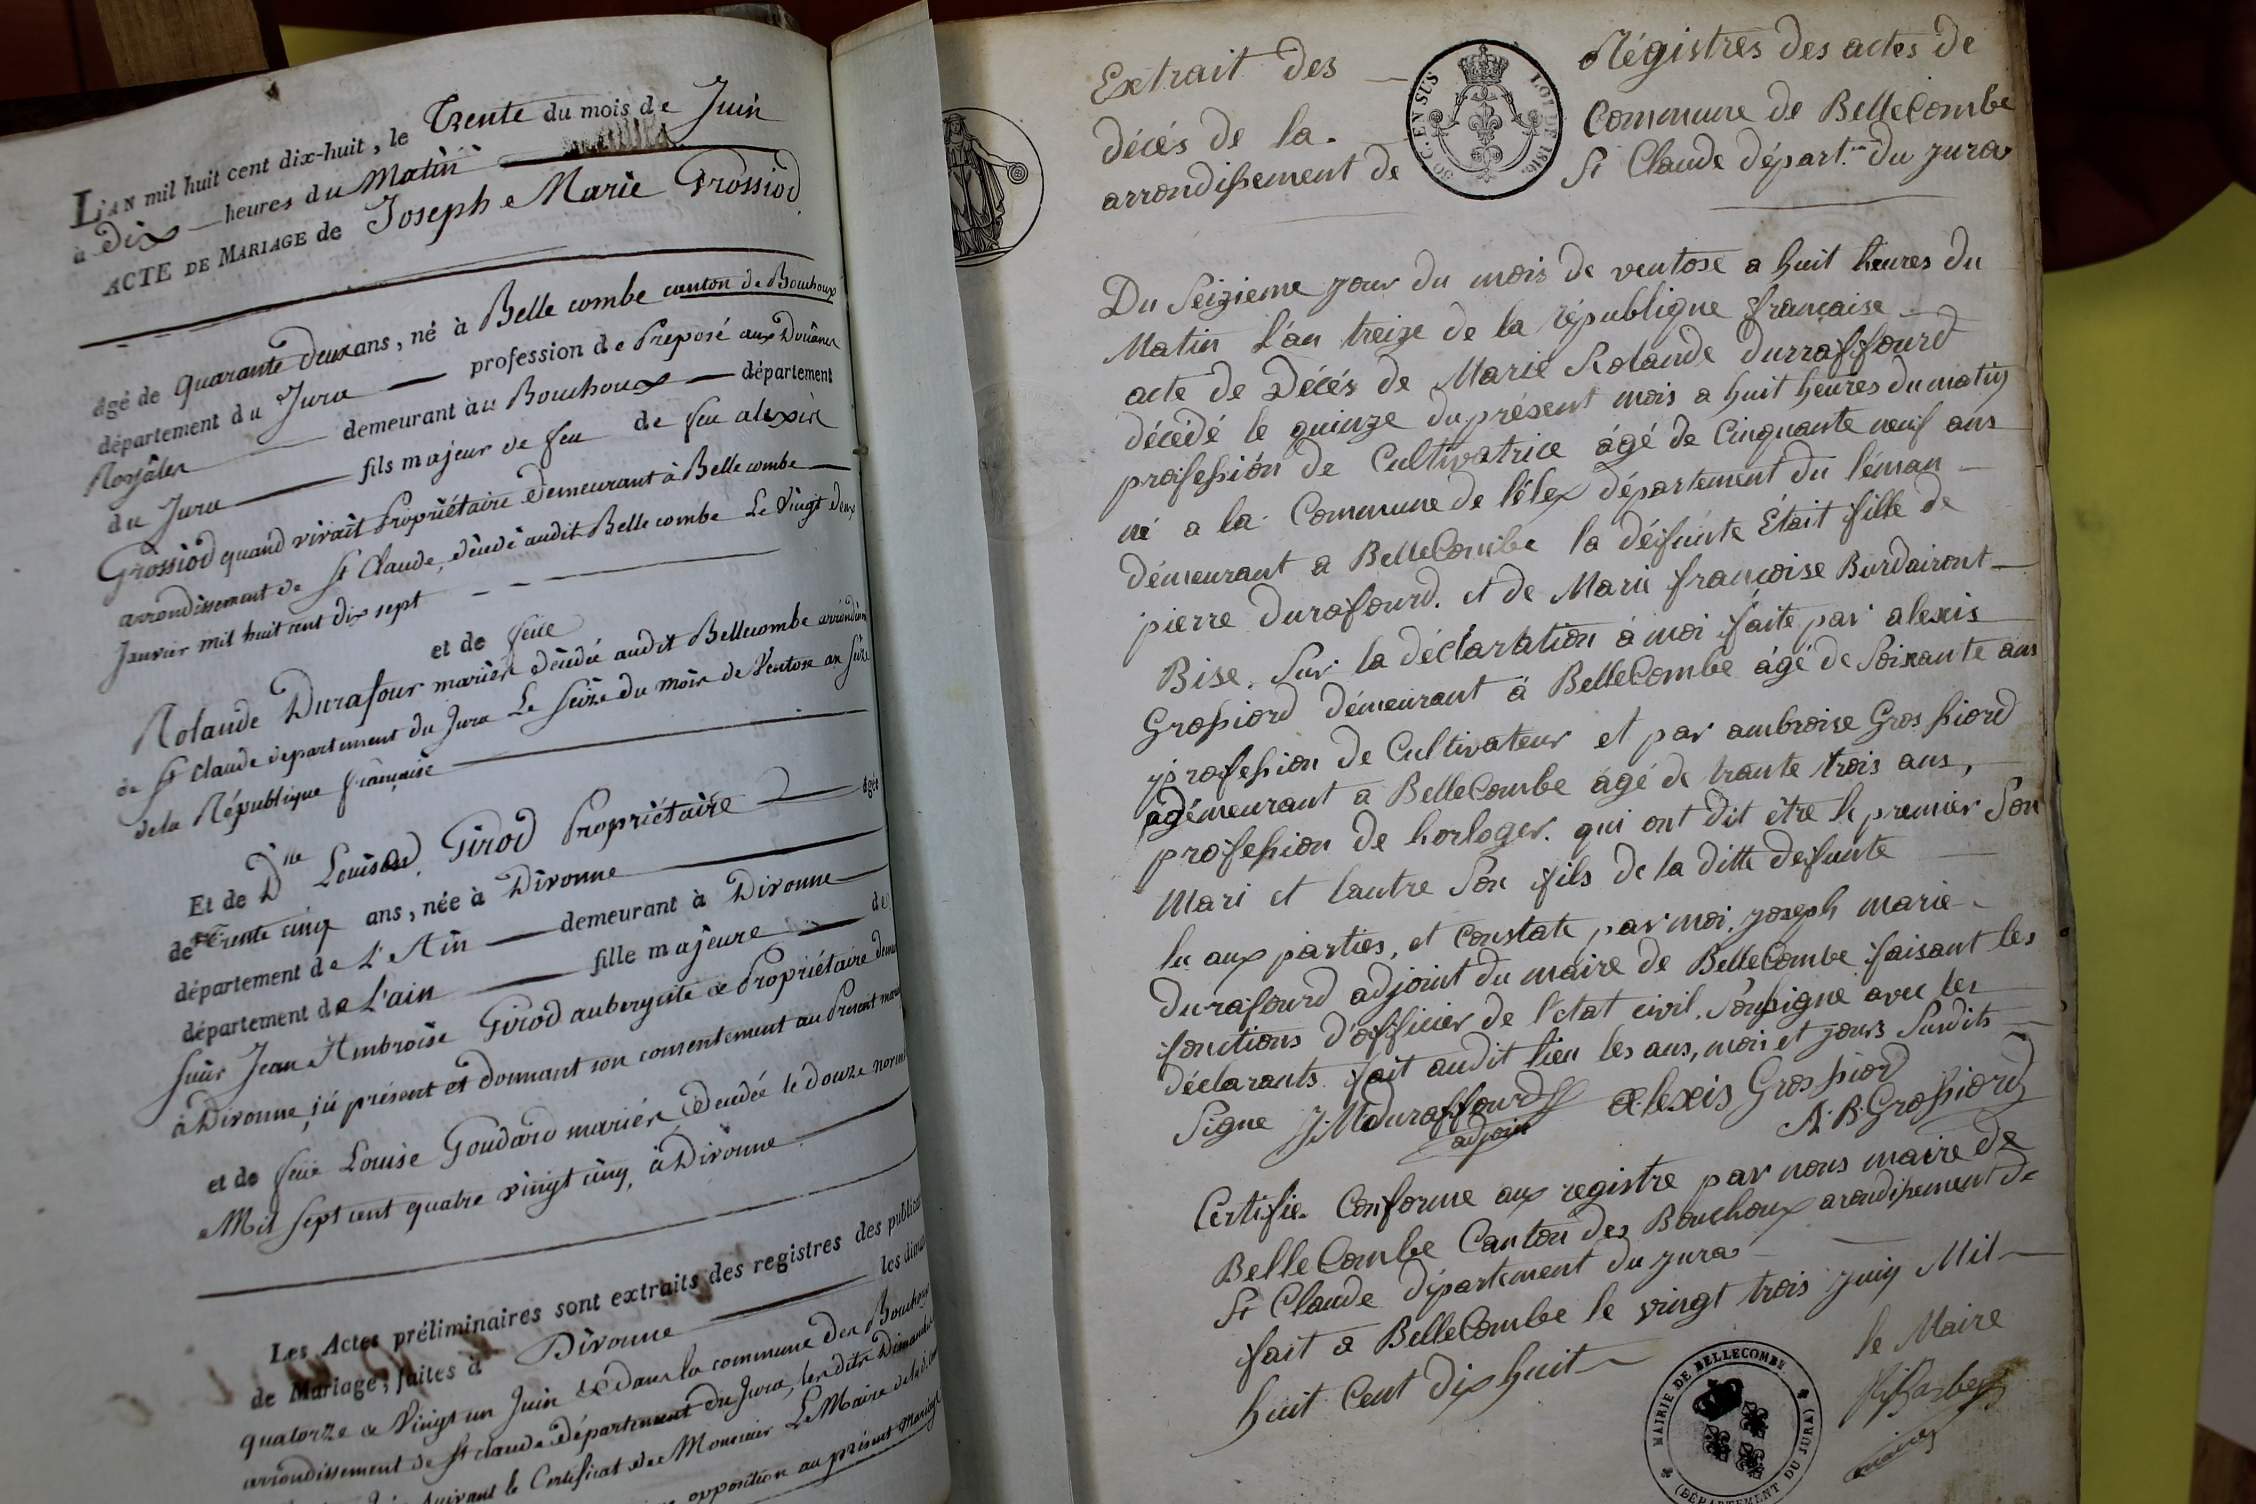 L'AN mil huit cent dix-huit, le Trente du mois de Juin
à Dix heures du Matin
ACTE DE MARIAGE de Joseph Marie Grossiod
agé de quarante deux ans, né à Belle combe canton de Bouchoux
département du Jura profession de Préposé aux Douânes
Royâles demeurant au Bouchoux département
du Jura fils majeur de feu de feu alexis
Grossiod quand vivait Propriétaire Demeurant à Belle combe
arrondissement de St Claude, décédé audit Belle combe Le Vingt deux
Janvier mil huit cent dix sept
et de feue
Rolande Durafour mariés décédée audit Bellecombe
de St Claude département du Jura Le Seize du mois de Ventose an
de la République française
Et de Dlle Louise Girod Propriétaire agée
de Trente cinq ans, née à Divonne
département de L'Ain demeurant à Divonne
département de L'ain fille majeure de
Sieur Jean Ambroise Girod aubergiste & Propriétaire
à Divonne, ici présent et donnant son consentement au Présent
et de feue Louise Goudard mariés, Décédée le douze
Mil sept cent quatre vingt cinq, à Divonne
Les Actes préliminaires sont extraits des registres des
de Mariage, faites à Divonne les
quatorze & Vingt un Juin & dans la commune des Bouchoux
arrondissement de St claude Département du Jura, les dits Dimanches
suivant le Certificat de Monsieur Le Maire de la
opposition au présent mariage
50 C. EN SUS
LOI DE 1816.
Extrait des Régistres des actes de
décés de la Commune de BelleCombe
arrondissement de St Claude départ. du jura
Du Seizieme jour du mois de ventose a huit heures du
Matin L'an treize de la république française
acte de Décés de Marie Rolande durraffourd
décédé le quinze du présent mois a huit heures du matin
profession de Cultivatrice âgé de Cinquante neuf ans
né a la Commune de lélex département du léman
démeurant a BelleCombe la défunte Etait fille de
pierre durafourd. et de Marie françoise Burdairont
Bise. Sur la déclaration à moi faite par alexis
Grossiord démeurant à BelleCombe âgé de Soixante ans
profession de Cultivateur et par ambroise Grossiord
démeurant a BelleCombe âgé de trante trois ans,
profession de horloger. qui ont dit être le premier Son
Mari et lautre Son fils de la ditte defunte
lu aux parties, et constaté par moi, joseph marie
durafourd adjoint du maire de BelleCombe faisant les
fonctions d'officier de l'etat civil. Sousigné avec les
déclarants fait audit lieu les ans, mois et jours Susdits
Signe J.M duraffourd alexis Grossiord
adjoint A. B. Grossiord
Certifie Conforme aux registre par nous maire de
BelleCombe Canton des Bouchoux arondissement de
St Claude département du jura
fait a BelleCombe le vingt trois juin Mil
huit Cent Dix huit
le Maire
maire
MAIRIE DE BELLECOMBE
(DÉPARTEMENT DU JURA)